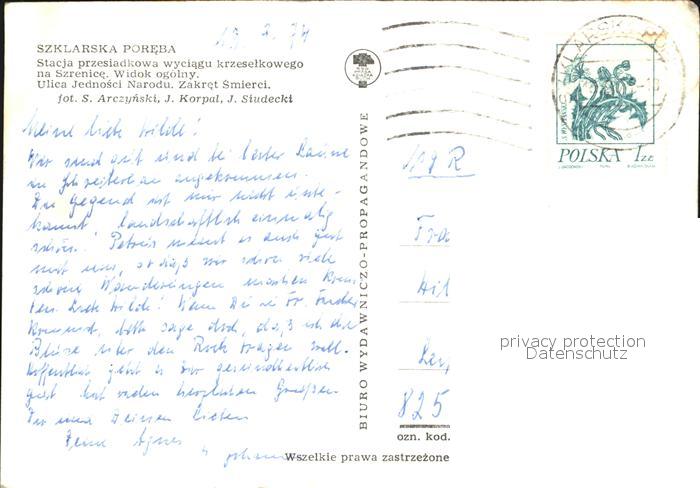 19. 3. 74
SZKLARSKA PORĘBA
Stacja przesiadkowa wyciągu krzesełkowego
na Szrenicę. Widok ogólny.
Ulica Jedności Narodu. Zakręt Śmierci.
fot. S. Arczyński, J. Korpal, J. Siudecki
Meine liebe Hilde!
Wir sind gut und bei bester Laune
in angekommen.
Die Gegend ist mir nicht unbe-
kannt, landschaftlich einmalig
schön. meint es auch jetzt
mit uns, so daß wir schon viele
schöne Wanderungen machen konn-
ten. Liebe Hilde! Wenn Du
kommst, bitte sage doch, daß ich die
Bluse über den Rock tragen will.
Hoffentlich geht es Dir gesundheitlich
gut. herzlichen Grüßen
Dir und Deinen Lieben
Deine Agnes
u.
BIURO WYDAWNICZO-PROPAGANDOWE
POLSKA 1 ZŁ
109 R
825
ozn. kod.
Wszelkie prawa zastrzeżone
privacy protection
Datenschutz